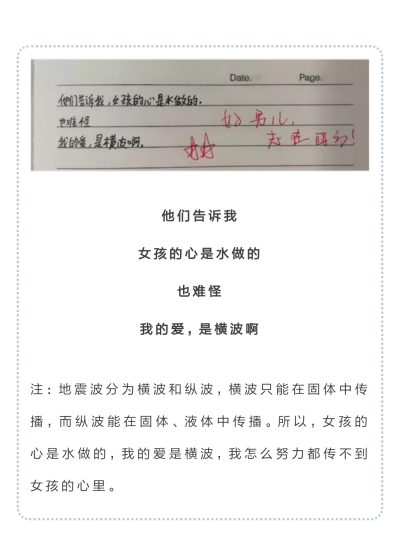 Date.
Page.
他们告诉我,女孩的心是水做的.
也难怪
我的爱,是横波啊,
好男儿,
志在四方!
他们告诉我
女孩的心是水做的
也难怪
我的爱,是横波啊
注:地震波分为横波和纵波,横波只能在固体中传
播,而纵波能在固体、液体中传播。所以,女孩的
心是水做的,我的爱是横波,我怎么努力都传不到
女孩的心里。